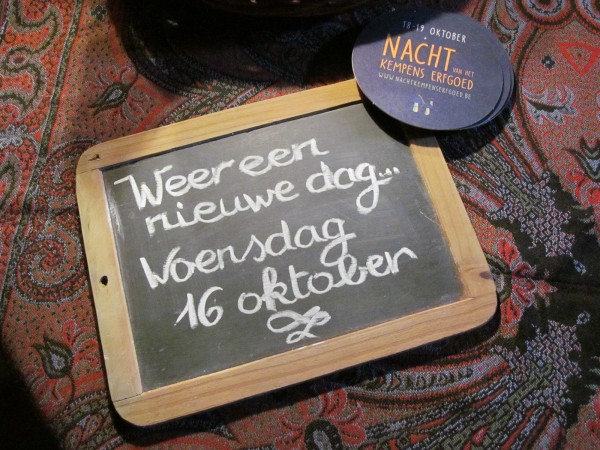 18-19 OKTOBER
NACHT
VAN HET
KEMPENS ERFGOED
WWW.NACHTKEMPENSERFGOED.BE
Weer een
nieuwe dag...
Woensdag
16 oktober